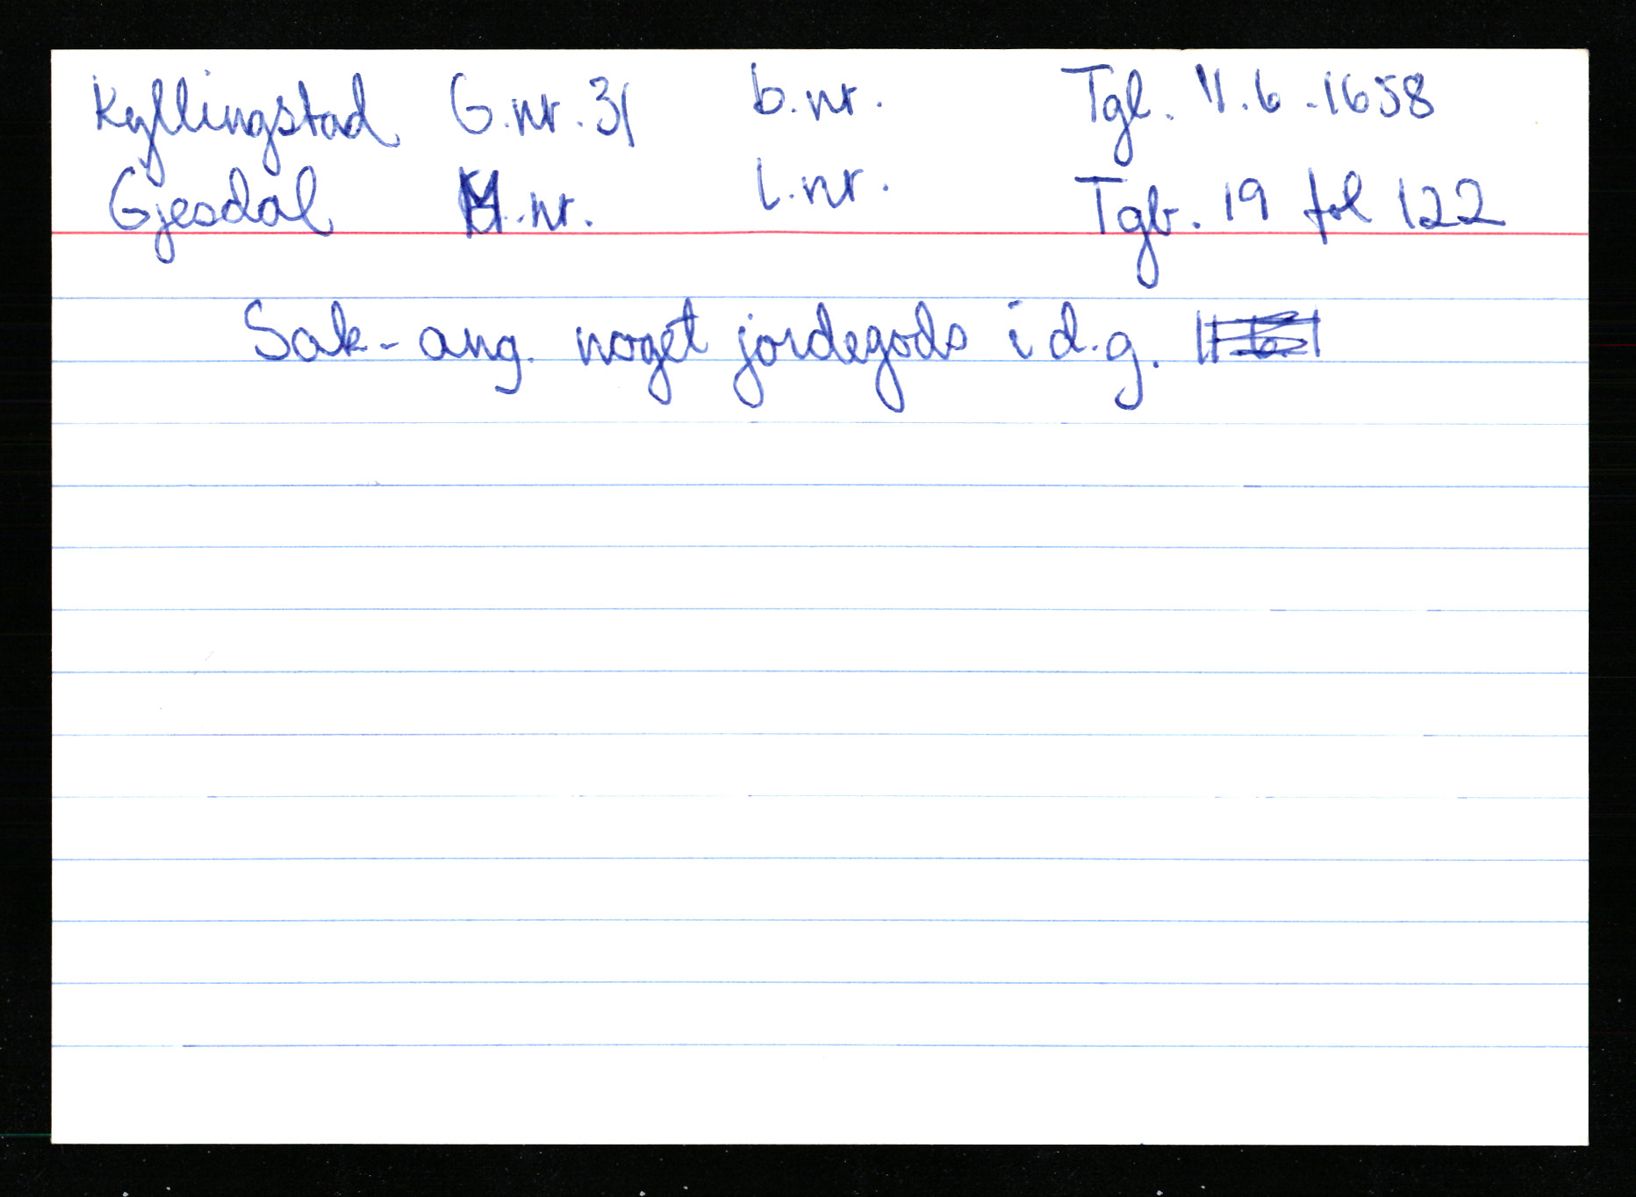 Kyllingstad G.nr. 31 b.nr. Tgl. 11.6.1658
Gjesdal M.nr. l.nr. Tgb. 19 fol 122
Sak- ang. noget jordegods i d.g.